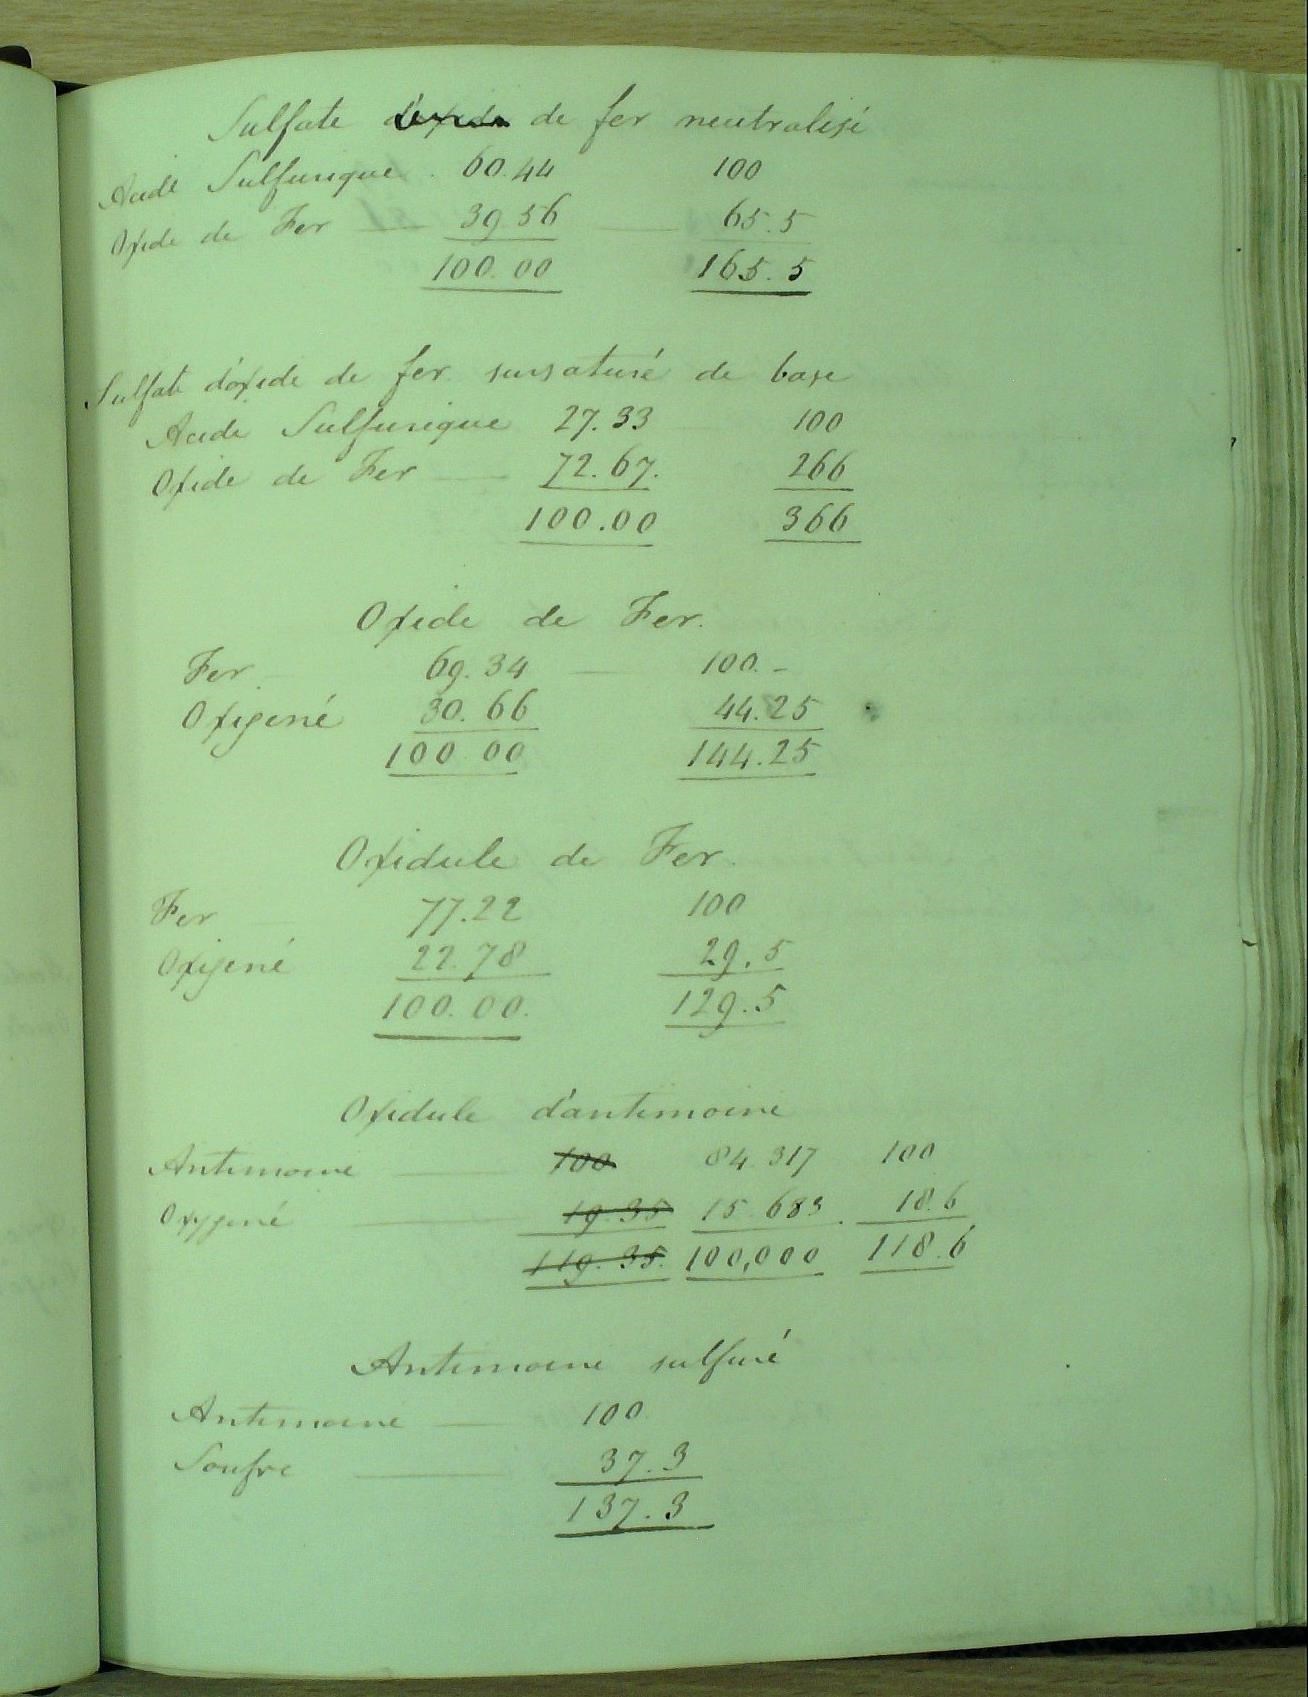 Sulfate d'oxide de fer neutralisé
Acide Sulfurique . 60.44 100
Oxide de Fer 39.56 65.5
100.00 165.5
Sulfate d'oxide de fer sursaturé de base
Acide Sulfurique 27.33 100
Oxide de Fer 72.67. 266
100.00 366
Oxide de Fer.
Fer 69.34 100.-
Oxigené 30.66 44.25
100.00 144.25
Oxidule de Fer.
Fer 77.22 100
Oxigené 22.78 29.5
100.00. 129.5
Oxidule d'antimoine
Antimoine 100 84.317 100
Oxygené 19.35 15.683 18.6
119.35. 100,000 118.6
Antimoine sulfuré
Antimoine 100
Soufre 37.3
137.3